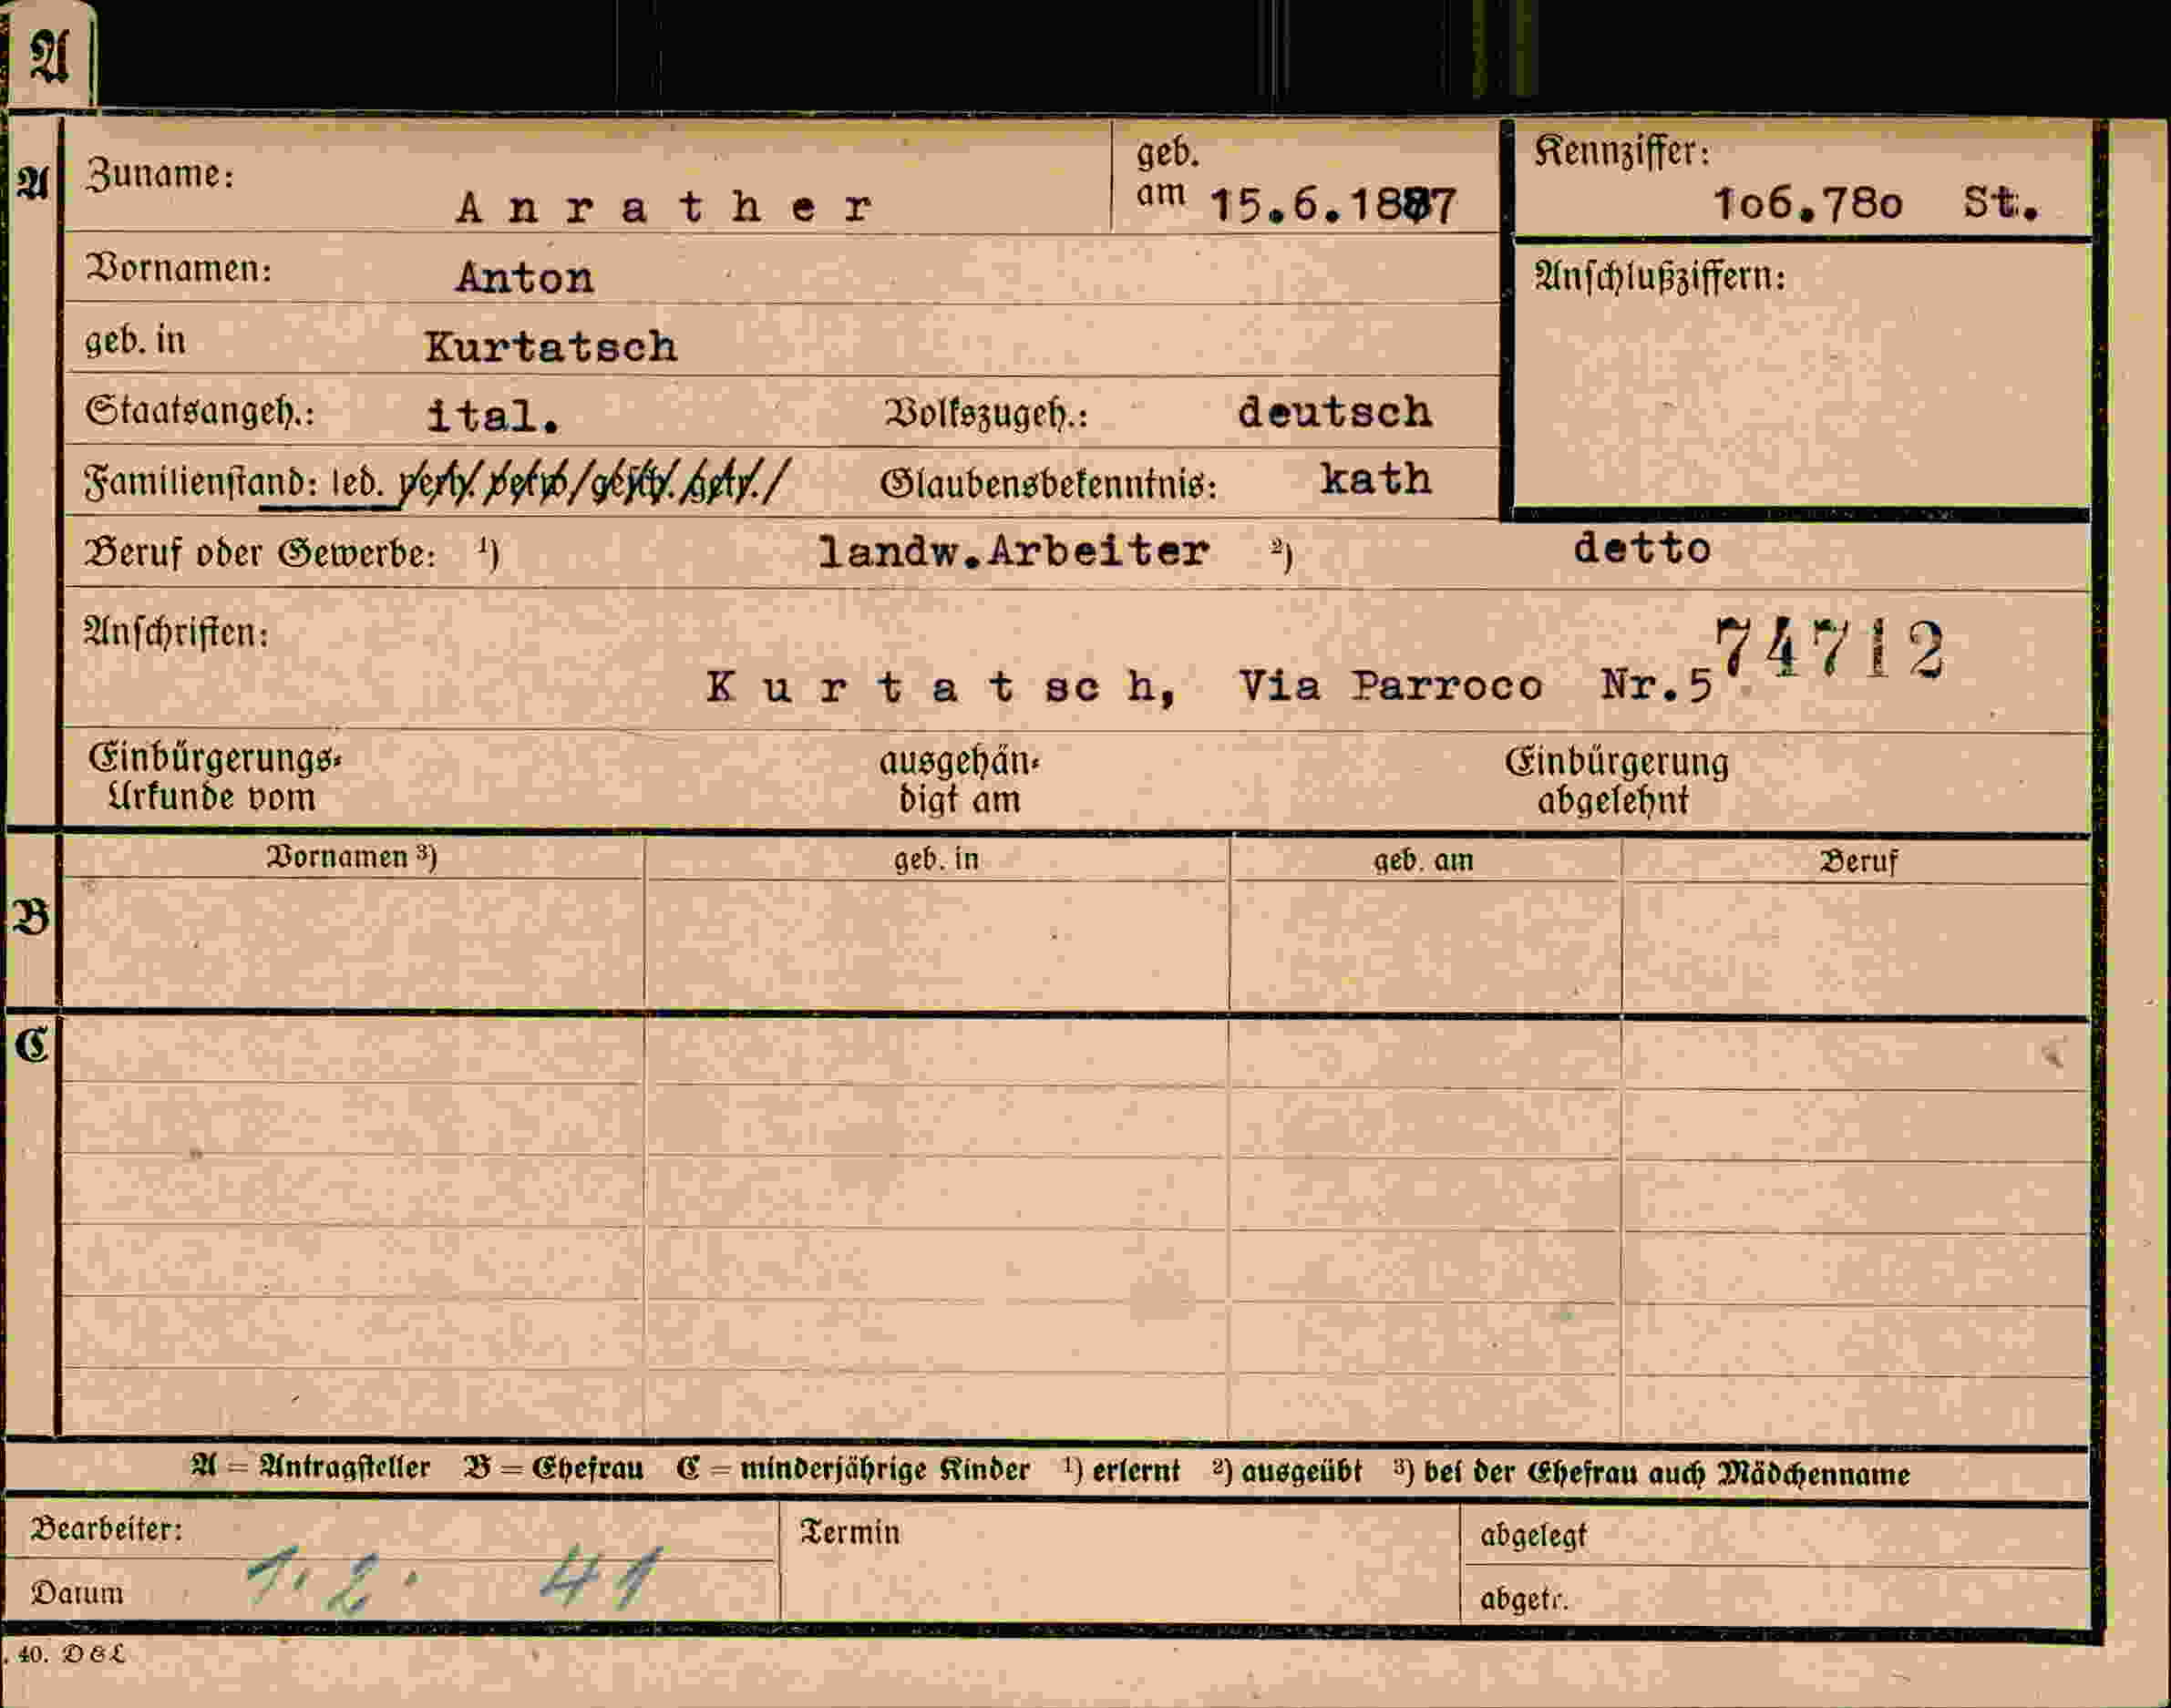 A
A
Zuname: A n r a t h e r
geb. am 15.6.1887
Kennziffer: 1o6.78o St.
Vornamen: Anton
Anschlußziffern:
geb. in Kurtatsch
Staatsangeh.: ital. Volkszugeh.: deutsch
Familienstand: led. verh. verw. gesch. getr. Glaubensbekenntnis: kath
Beruf oder Gewerbe: ¹) landw.Arbeiter ²) detto
Anschriften: 74712
K u r t a t sc h, Via Parroco Nr.5
Einbürgerungs- ausgehän- Einbürgerung
Urkunde vom digt am abgelehnt
Vornamen ³) geb. in geb. am Beruf
B
C
A = Antragsteller B = Ehefrau C = minderjährige Kinder ¹) erlernt ²) ausgeübt ³) bei der Ehefrau auch Mädchenname
Bearbeiter: Termin abgelegt
Datum 1. 2. 41 abgetr.
. 40. D&L